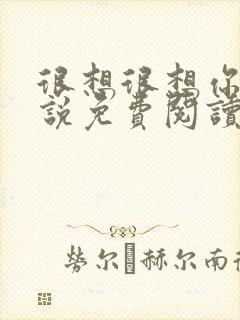 很想很想你
説免費閱讀
勞尔·赫尔南德